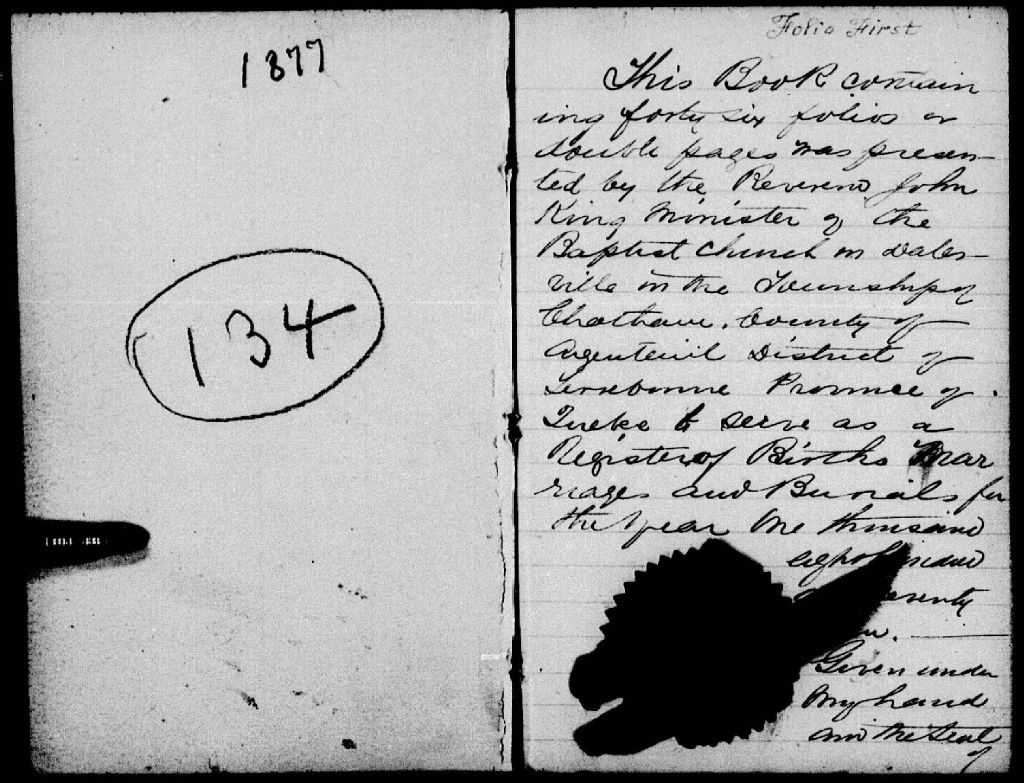 1877
134
Folio First
This Book contain
ing forty six folios or
double pages was presen-
ted by the Reverend John
King Minister of the
Baptist Church in Dales-
ville in the Township of
Chatham, County of
Argenteuil District of
Terrebonne Province of
Quebec to serve as a
Register of Births Mar
riages and Burials for
the year One thousand
eight hundred
seventy
Given under
my hand
and the Seal
of